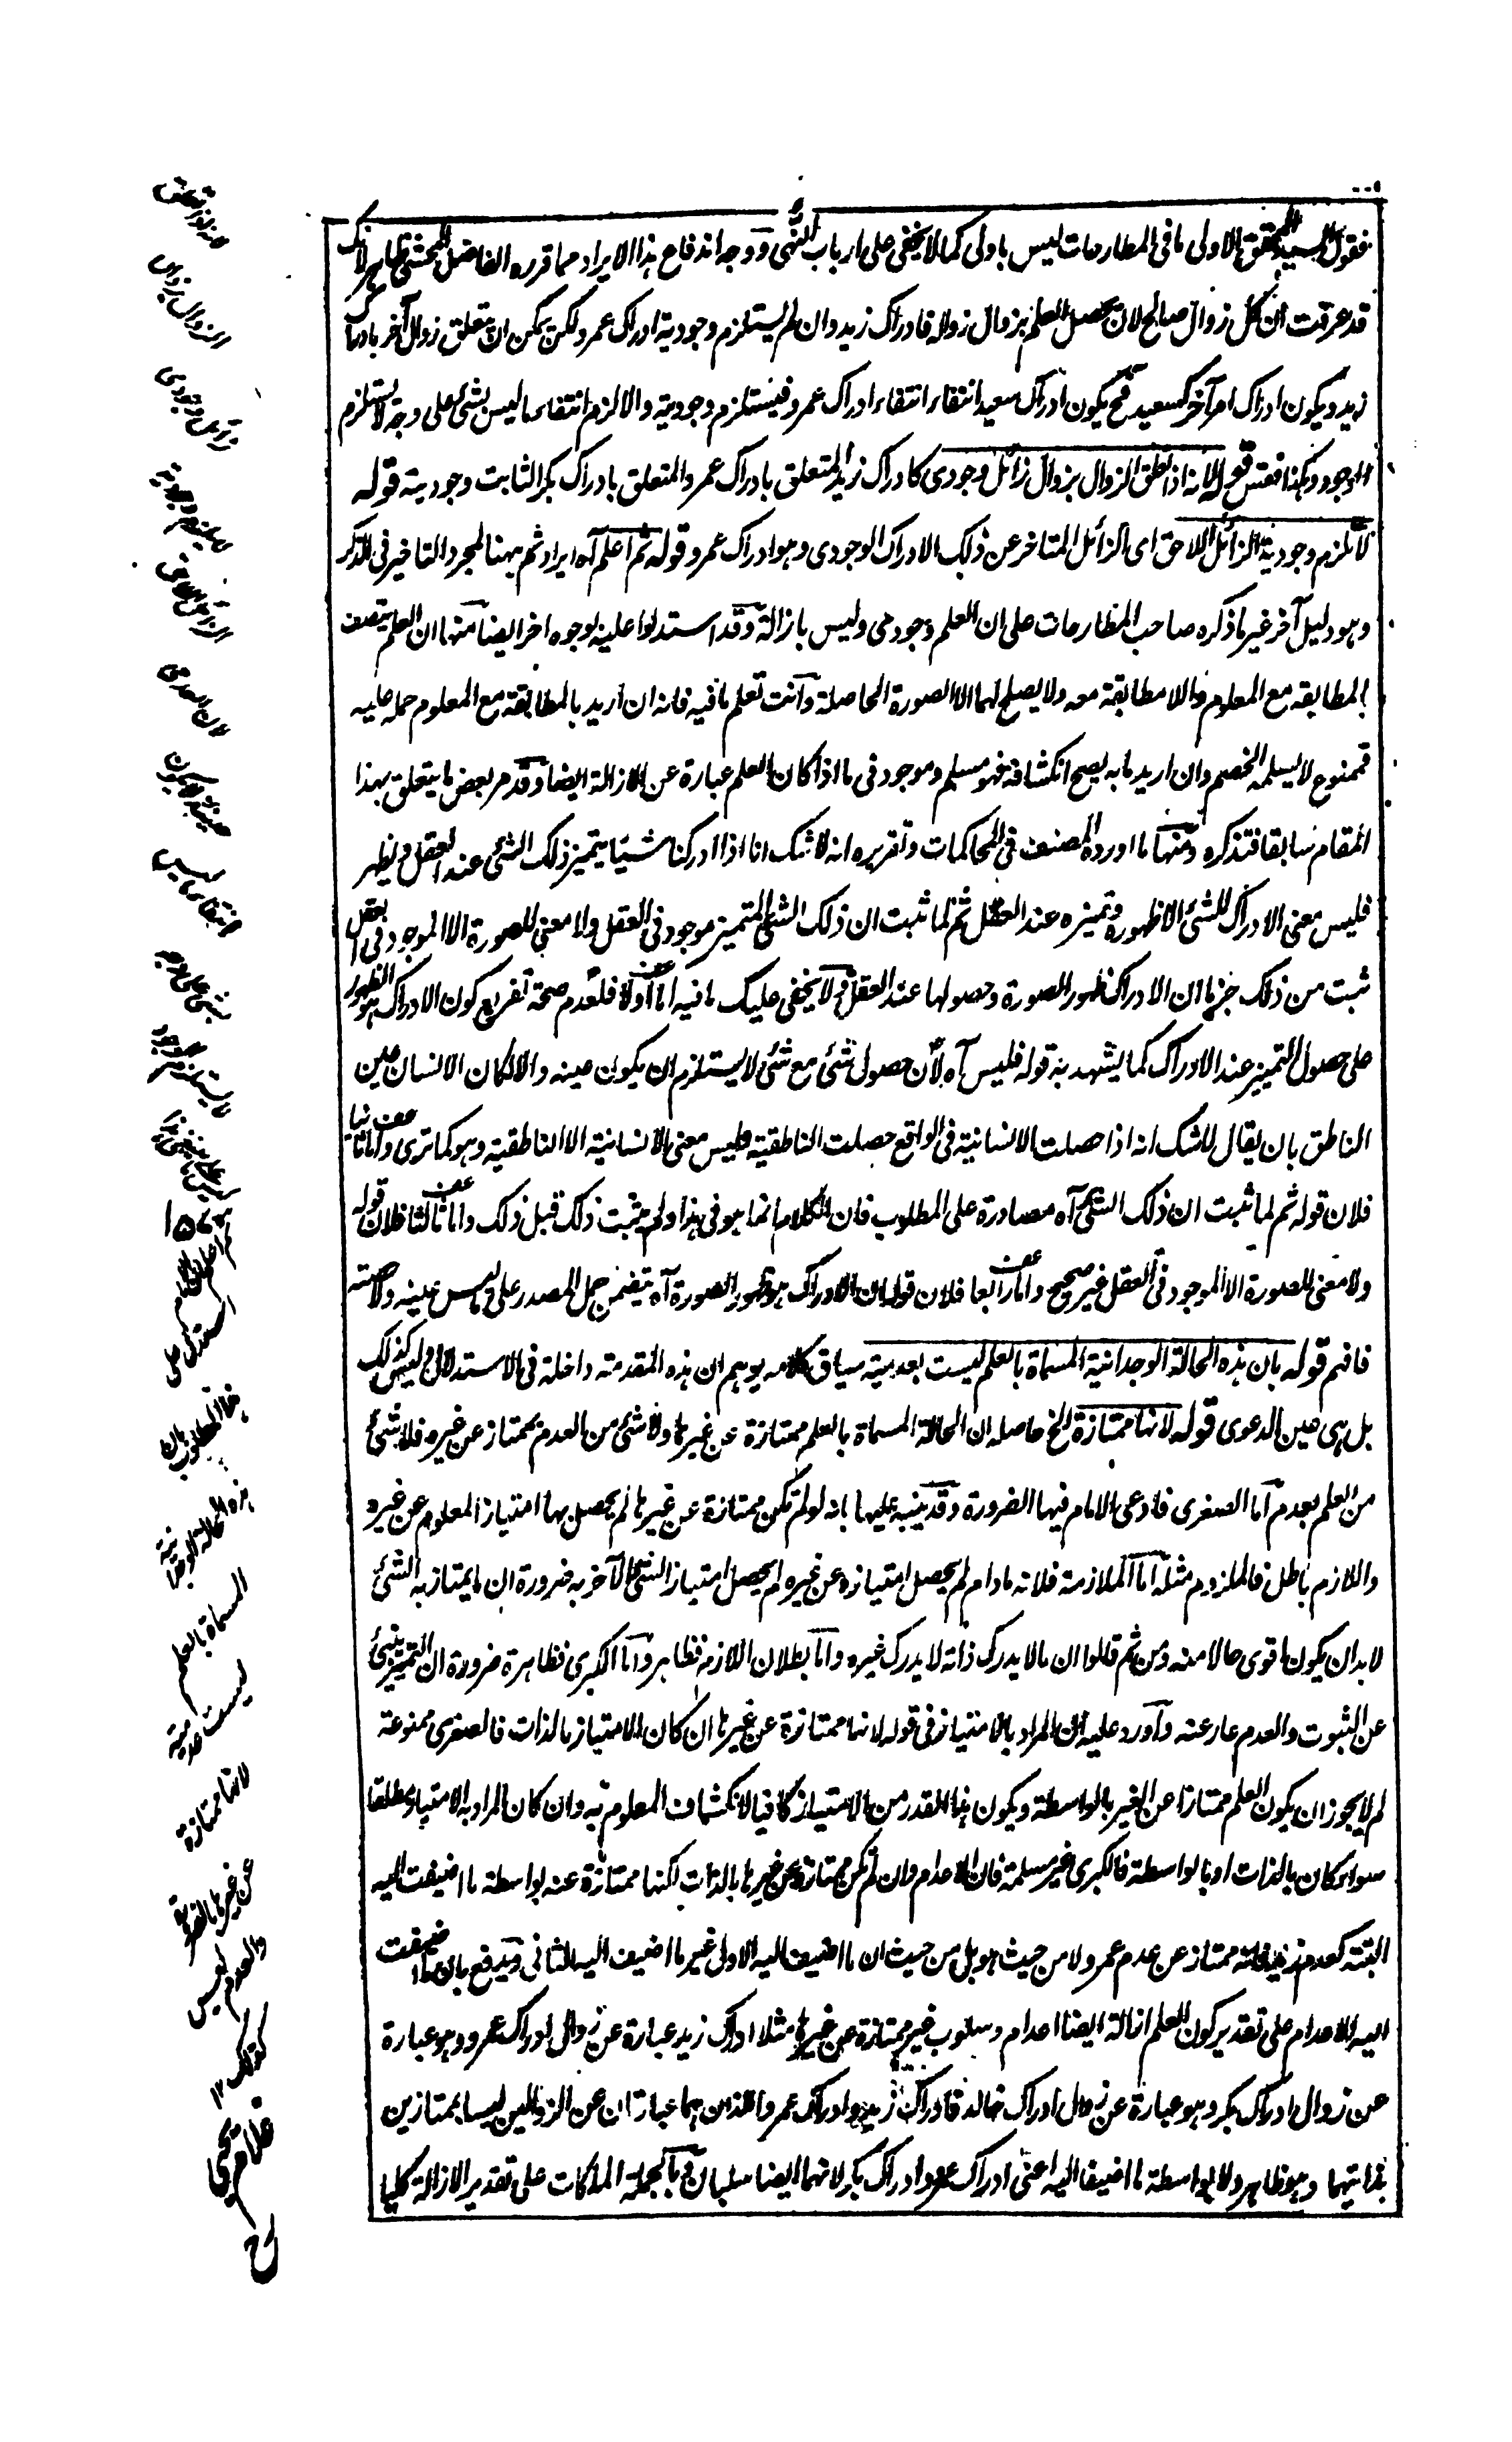 فقول السيد المحقق الاولى ما فى المطارحات ليس باولى كما لا يخفى على ارباب النهى ووجه اندفاع هذا الايراد مما قرره الفاضل المحشى ظاهر لانك
قد عرفت ان كل زوال صالح لان يحصل العلم بزوال زواله فادراك زيد وان لم يستلزم وجودية ادراك عمرو لكن يمكن ان يتعلق زوال آخر بادراك
زيد ويكون ادراك امر آخر كسعيد فح يكون ادراك سعيد انتفاء انتفاء ادراك عمرو فيستلزم وجوديته والا لزم انتفاء ما ليس بشئ على وجه لا يستلزم
الوجود وهكذا فتش قوله لانه اذا تعلق الزوال بزوال زائل وجودى كادراك زيد المتعلق بادراك عمرو المتعلق بادراك بكر الثابت وجوديته قوله
لا يلزم وجودية الزائل اللاحق اى الزائل المتاخر عن ذلك الادراك الوجودى وهو ادراك عمرو قوله ثم اعلم آه ايراد ثم ههنا لمجرد التاخير فى الذكر
وهو دليل آخر غير ما ذكره صاحب المطارحات على ان العلم وجودى وليس بازالة وقد استدلوا عليه بوجوه اخر ايضا منها ان العلم يتصف
بالمطابقة مع المعلوم واللا مطابقة معه ولا يصلح لهما الا الصورة الحاصلة وانت تعلم ما فيه فانه ان اريد بالمطابقة مع المعلوم حمله عليه
فممنوع لا يسلمه الخصم وان اريد ما به يصح انكشافه فهو مسلم وموجود فى ما اذا كان العلم عبارة عن الازالة ايضا وقد مر بعض ما يتعلق بهذا
المقام سابقا فتذكره ومنها ما اورده المصنف فى المحاكمات وتقريره انه لا شك انا اذا ادركنا شيئا يتميز ذلك الشئ عند العقل ويظهر
فليس معنى الادراك للشئ الا ظهوره وتميزه عند العقل ثم لما ثبت ان ذلك الشئ المتميز موجود فى العقل ولا معنى للصورة الا الموجود فى العقل
ثبت من ذلك جزما ان الادراك ظهور الصورة وحصولها عند العقل ولا يخفى عليك ما فيه اما اولا فلعدم صحة تفريع كون الادراك هو الظهور
على حصول التميز عند الادراك كما يشهد به قوله فليس آه لان حصول شئ مع شئ لا يستلزم ان يكون عينه والا لكان الانسان عين
الناطق بان يقال لا شك انه اذا حصلت الانسانية فى الواقع حصلت الناطقية فليس معنى الانسانية الا الناطقية وهو كما ترى واما ثانيا
فلان قوله ثم لما ثبت ان ذلك الشئ آه مصادرة على المطلوب فان الكلام انما هو فى هذا ولم يثبت ذلك قبل ذلك واما ثالثا فلان قوله
ولا معنى للصورة الا الموجود فى العقل غير صحيح واما رابعا فلان قوله ان الادراك هو ظهور الصورة آه يتضمن حمل المصدر على ما ليس عينه ولا
فافهم قوله بان هذه الحالة الوجدانية المسماة بالعلم ليست بعدمية سياق كلامه يوهم ان هذه المقدمة داخلة فى الاستدلال وليس كذلك
بل هى عين الدعوى قوله لانها ممتازة الخ حاصله ان الحالة المسماة بالعلم ممتازة عن غيرها ولا شئ من العدم بممتاز عن غيره فلا شئ
من العلم بعدم اما الصغرى فادعى الامام فيها الضرورة وقد ينبه عليها بانه لو لم تكن ممتازة عن غيرها لم يحصل بها امتياز المعلوم عن غيره
واللازم باطل فالملزوم مثله اما الملازمة فلانه ما دام لم يحصل امتيازه عن غيره لم يحصل امتياز الشئ الآخر به ضرورة ان ما يمتاز به الشئ
لابد ان يكون اقوى حالا منه ومن ثم قالوا ان ما لا يدرك ذاته لا يدرك غيره واما بطلان اللازم فظاهر واما الكبرى فظاهرة ضرورة ان التميز ينبئ
عن الثبوت والعدم عار عنه واورد عليه ان المراد بالامتياز فى قوله لانها ممتازة عن غيرها ان كان الامتياز بالذات فالصغرى ممنوعة
لم لا يجوز ان يكون العلم ممتازا عن الغير بالواسطة ويكون هذا القدر من الامتياز كافيا لانكشاف المعلوم به وان كان المراد به الامتياز مطلقا
سواء كان بالذات او بالواسطة فالكبرى غير مسلمة فان الاعدام وان لم تكن ممتازة عن غيرها بالذات لكنها ممتازة عنه بواسطة ما اضيفت اليه
البتة كعدم زيد فانه ممتاز عن عدم عمرو لا من حيث هو بل من حيث ان ما اضيف اليه الاول غير ما اضيف اليه الثانى ويدفع بان ما اضيفت
اليه الاعدام على تقدير كون العلم ازالة ايضا اعدام وسلوب غير ممتازة عن غيرها مثلا ادراك زيد عبارة عن زوال ادراك عمرو وهو عبارة
عن زوال ادراك بكر وهو عبارة عن زوال ادراك خالد فادراك زيد وادراك عمرو اللذان هما عبارتان عن الزوالين ليسا بممتازين
بذاتيهما وهو ظاهر ولا بواسطة ما اضيفا اليه اعنى ادراك عمرو وادراك بكر لانهما ايضا سلبان وبالجملة الملكات على تقدير الازالة كلها
استدل على
هذا المطلوب بان
هذه الحالة الوجدانية
المسماة بالعلم
ليست عدمية
لانها ممتازة
عن غيرها بالضرورة
والعدم ليس
كذلك ١٢
غلام يحيى